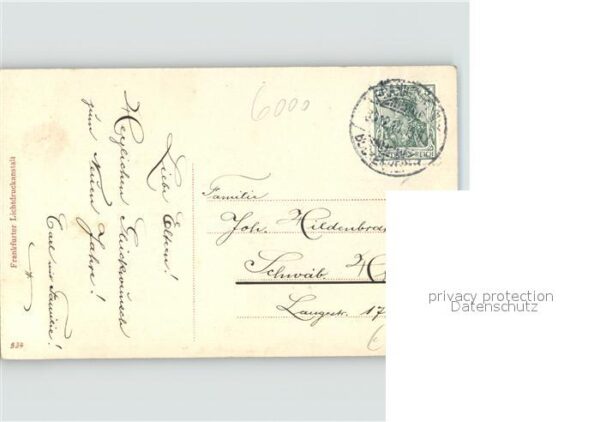 Frankfurter Lichtdruckanstalt
934
Liebe Eltern!
Herzlichen Glückwunsch
zum Neuen Jahre!
Carl und Familie!
6000
Familie
Joh. Hildenbra
Schwäb.
Langestr. 17
privacy protection
Datenschutz